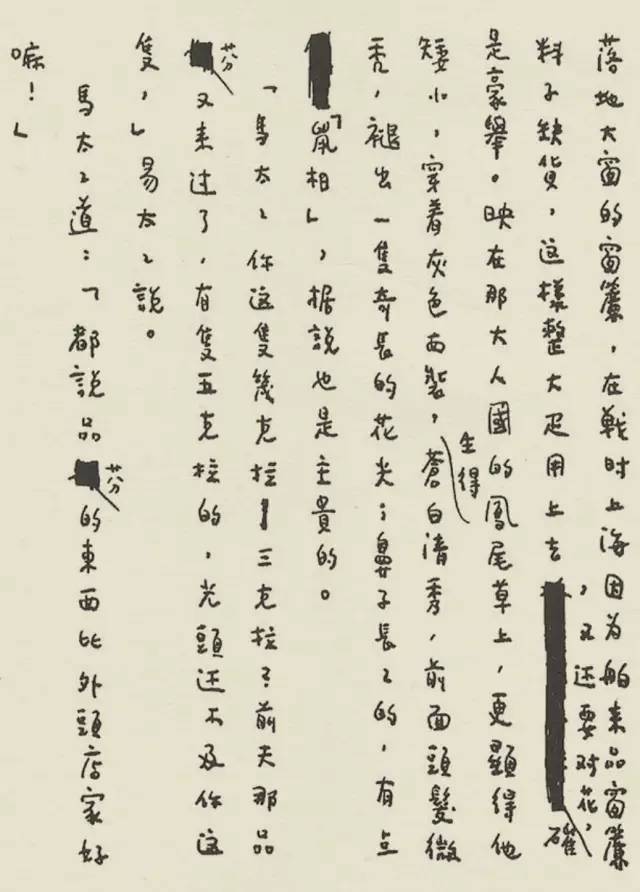 落地大窗的窗簾，在戰时上海因为舶来品窗簾
料子缺貨，这樣整大疋用上去，又还要对花，確
是豪舉。映在那大人國的鳳尾草上，更顯得他
矮小，穿着灰色西裝，生得蒼白清秀，前面頭髮微
秃，褪出一隻奇長的花尖；鼻子長〻的，有点
「鼠相」，据說也是主貴的。
「馬太〻你这隻幾克拉—三克拉？前天那品
芬又来过了，有隻五克拉的，光頭还不及你这
隻，」易太〻說。
馬太〻道：「都說品芬的東西比外頭店家好
嘛！」